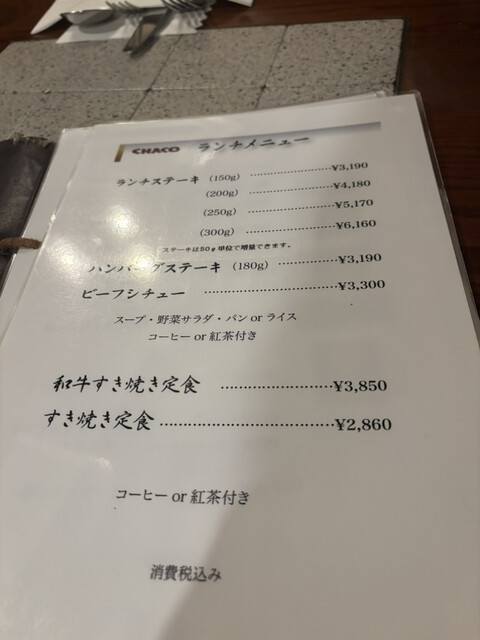 CHACO ランチメニュー
ランチステーキ (150g) ……………… ¥3,190
(200g) ……………… ¥4,180
(250g) ……………… ¥5,170
(300g) ……………… ¥6,160
ステーキは50g単位で増量できます。
ハンバーグステーキ (180g) ……………… ¥3,190
ビーフシチュー ……………… ¥3,300
スープ・野菜サラダ・パン or ライス
コーヒー or 紅茶付き
和牛すき焼き定食 ……………… ¥3,850
すき焼き定食 ……………… ¥2,860
コーヒー or 紅茶付き
消費税込み